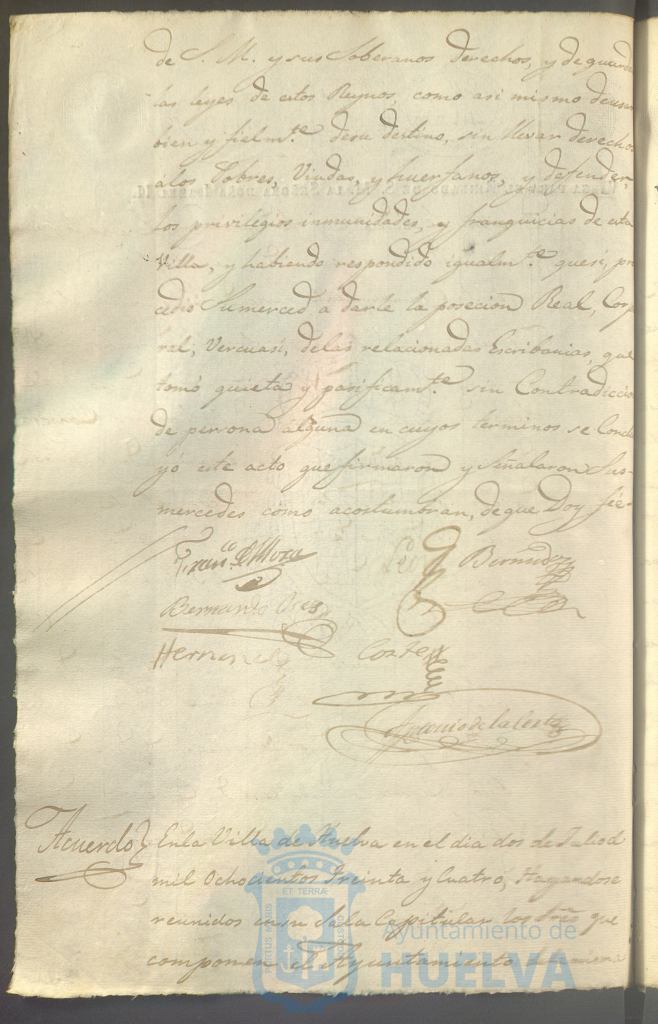 de S. M. y sus Soberanos derechos, y de guarda
las leyes de estos Reynos, como asi mismo de usar
bien y fielm.te desu destino, sin llevar derechos
alos Pobres, Viudas, y huerfanos, y defender
los privilegios inmunidades, y franquicias de esta
Villa, y habiendo respondido igualm.te quesi, pro
cedio Sumerced a darle la posecion Real, Corpo
ral, Vercuasi, delas relacionadas Escribanias, que
tomó quieta y pasificam.te sin Contradiccion
de persona alguna en cuyos terminos se Conclu
yó este acto que firmaron y Señalaron Sus
mercedes como acostumbran, de que Doy fée-
Fran.co
Bermudez
Bernardo
Hernandez
Cortes
Antonio de la Corte
Acuerdo
Enla Villa de Huelva en el dia dos de Julio d
mil Ochocientos Treinta y Cuatro, Hayandose
reunidos en su Sala Capitular los Sres que
componen el Ayuntamiento
ET TERRAE
Ayuntamiento de
HUELVA